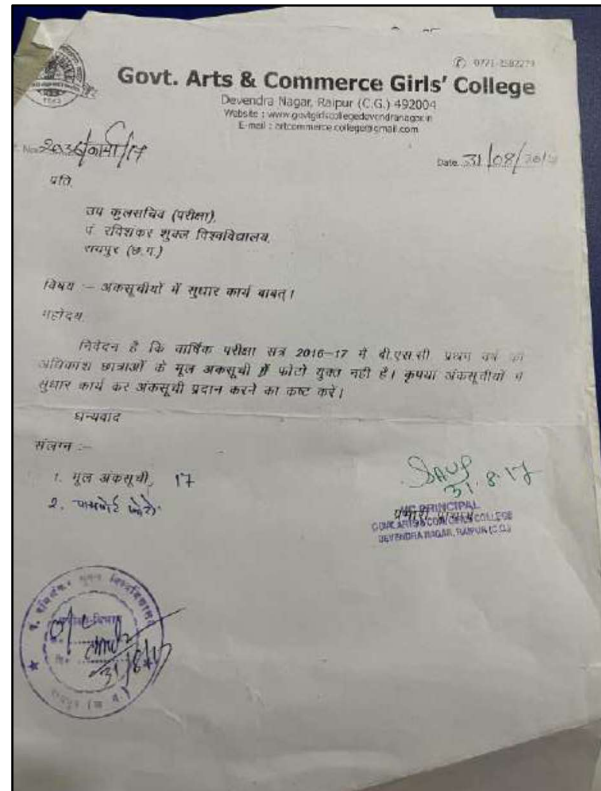 0771-
Govt. Arts & Commerce Girls' College
Devendra Nagar, Raipur (C.G.) 492004
Website : www.govtgirlscollegedevendranagar.in
E-mail : artcommerce.college@gmail.com
2036/
Date 31/08/
प्रति,
उप कुलसचिव (परीक्षा),
पं. रविशंकर शुक्ल विश्वविद्यालय,
रायपुर (छ.ग.)
विषय :- अंकसूचीयों में सुधार कार्य बाबत्।
महोदय,
निवेदन है कि वार्षिक परीक्षा सत्र 2016-17 में बी.एस.सी. प्रथम वर्ष की
अधिकांश छात्राओं के मूल अंकसूची में फोटो युक्त नहीं है। कृपया अंकसूचीयों में
सुधार कार्य कर अंकसूची प्रदान करने का कष्ट करें।
धन्यवाद
संलग्न :-
1. मूल अंकसूची, 17
2. पासपोर्ट फोटो
31.8.17
PRINCIPAL
GOVT. ARTS & COM. GIRLS COLLEGE
DEVENDRA NAGAR, RAIPUR (C.G.)
31/8/17